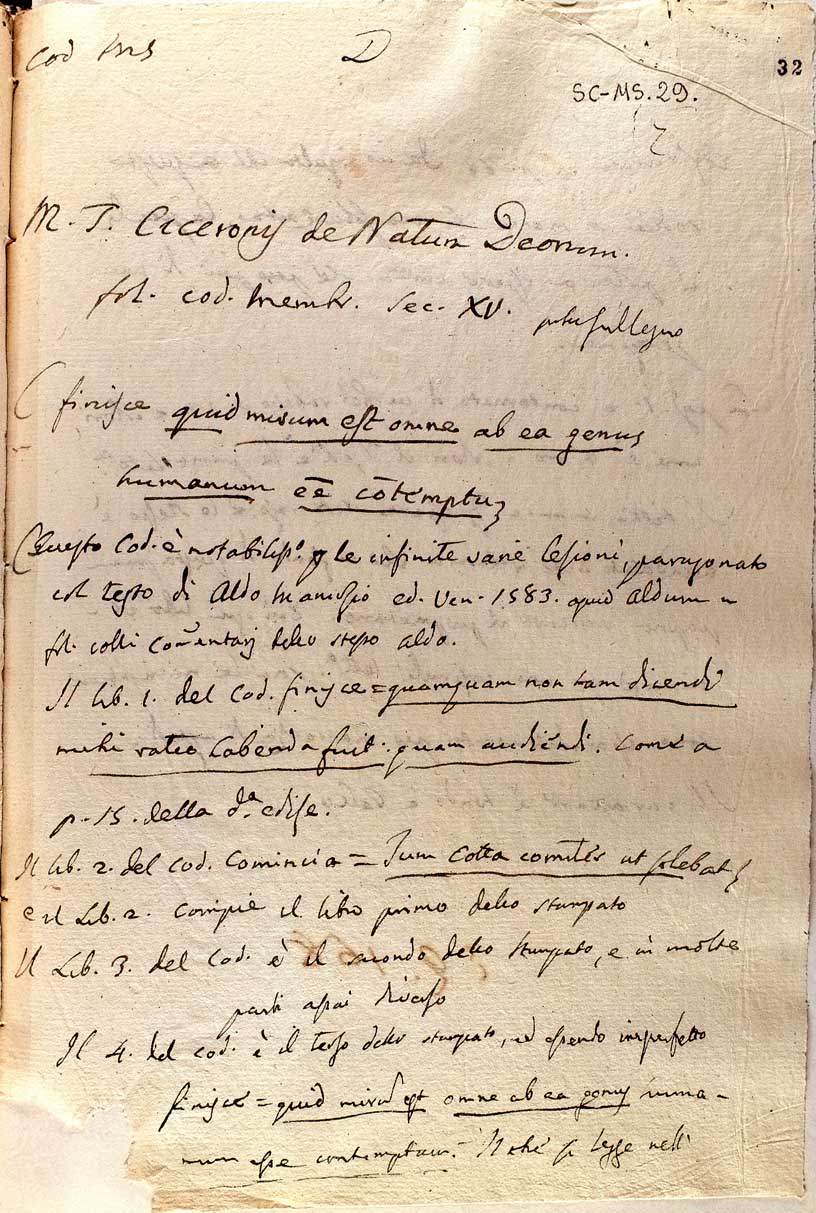 Cod Ms D 32
SC-MS.29.
M. T. Ciceronis de Natura Deorum.
fol. cod. membr. sec. XV.
finisce quid mirum est omne ab ea genus
humanum eē cōtemptu
Questo Cod. è notabiliss.º p le infinite varie lesioni, paragonato
col testo di Aldo Manusio ed. Ven. 1583. apud Aldum in
fol. colli Comentarj dello stesso Aldo.
Il lib. 1. del Cod. finisce = quamquam non tam dicendi
mihi ratio habenda fuit quam audiendi. Come a
p. 15. della d.ª edise.
Il lib. 2. del Cod. Comincia = Tum Cotta comiter ut solebat
e il Lib. 2. compie il libro primo dello stampato
Il Lib. 3. del Cod. è il secondo dello stampato, e in molte
parti assai diverso
Il 4. del cod. è il terso dello stampato, ed essendo imperfetto
finisce = quid mirū est omne ab ea genus huma-
num esse contemptum. = Il che si legge nell'